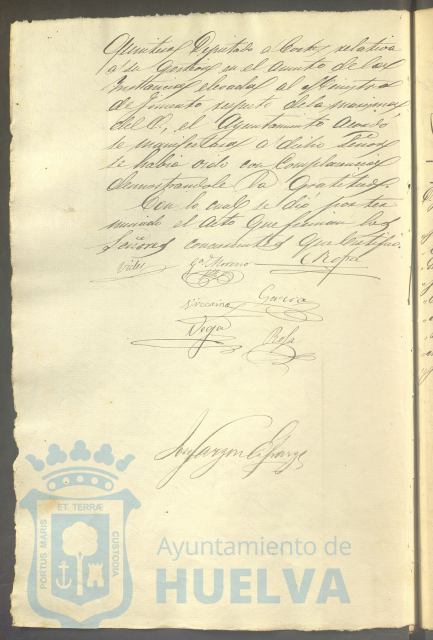 Quintero Diputado a Cortes relativa
a su gestion en el asunto de las
Instancias elevadas al Ministro
de Fomento respecto de la
el Ayuntamiento acordó
se manifestara a dicho Señor
se habia oido con Complacencia
demostrandole la Gratitud.
Con lo cual se dió por ter
minado el acto que firman los
Señores concurrentes que Certifico.
Gª Moreno
Vizcaino Garcia
Vega
Garzon
PORTUS MARIS ET TERRÆ CUSTODIA
Ayuntamiento de
HUELVA